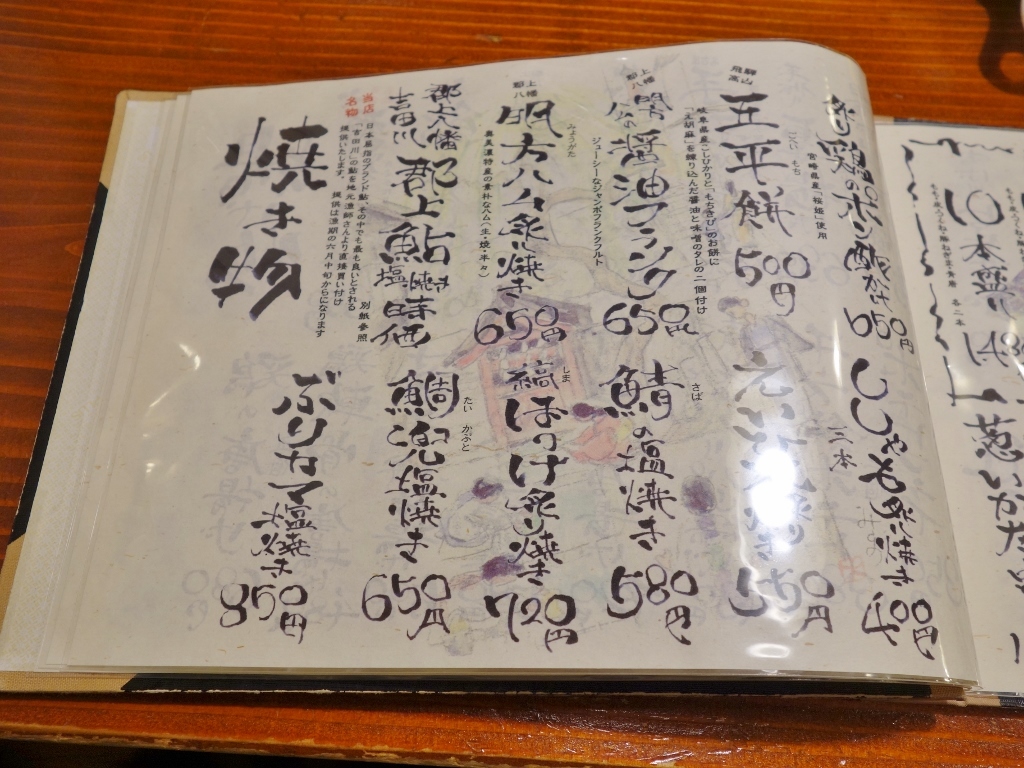 10本盛り
148
葱いかだ
鶏のポン酢かけ
650円
宮崎県産「桜姫」使用
ししゃも炙り焼き
三本
400円
飛騨高山
五平餅
ごへいもち
500円
岐阜県産こしひかりと「もちきび」のお餅に
「土胡麻」を練り込んだ醤油と味噌のタレの二個付け
550円
郡上八幡
醤油フランク
650円
ジューシーなジャンボフランクフルト
鯖の塩焼き
さば
580円
郡上八幡
明方ハム炙り焼き
みょうがた
650円
奥美濃特産の素朴なハム(生・焼・半々)
縞ほっけ炙り焼き
しま
720円
郡上八幡
吉田川
郡上鮎塩焼き
時価
鯛兜塩焼き
たい かぶと
650円
当店名物
日本屈指のブランド鮎、その中でも最も良いとされる
「吉田川」の鮎を地元漁師さんより直接買い付け
提供いたします。 提供は漁期の六月中旬からになります
別紙参照
焼き物
ぶりカマ塩焼き
850円